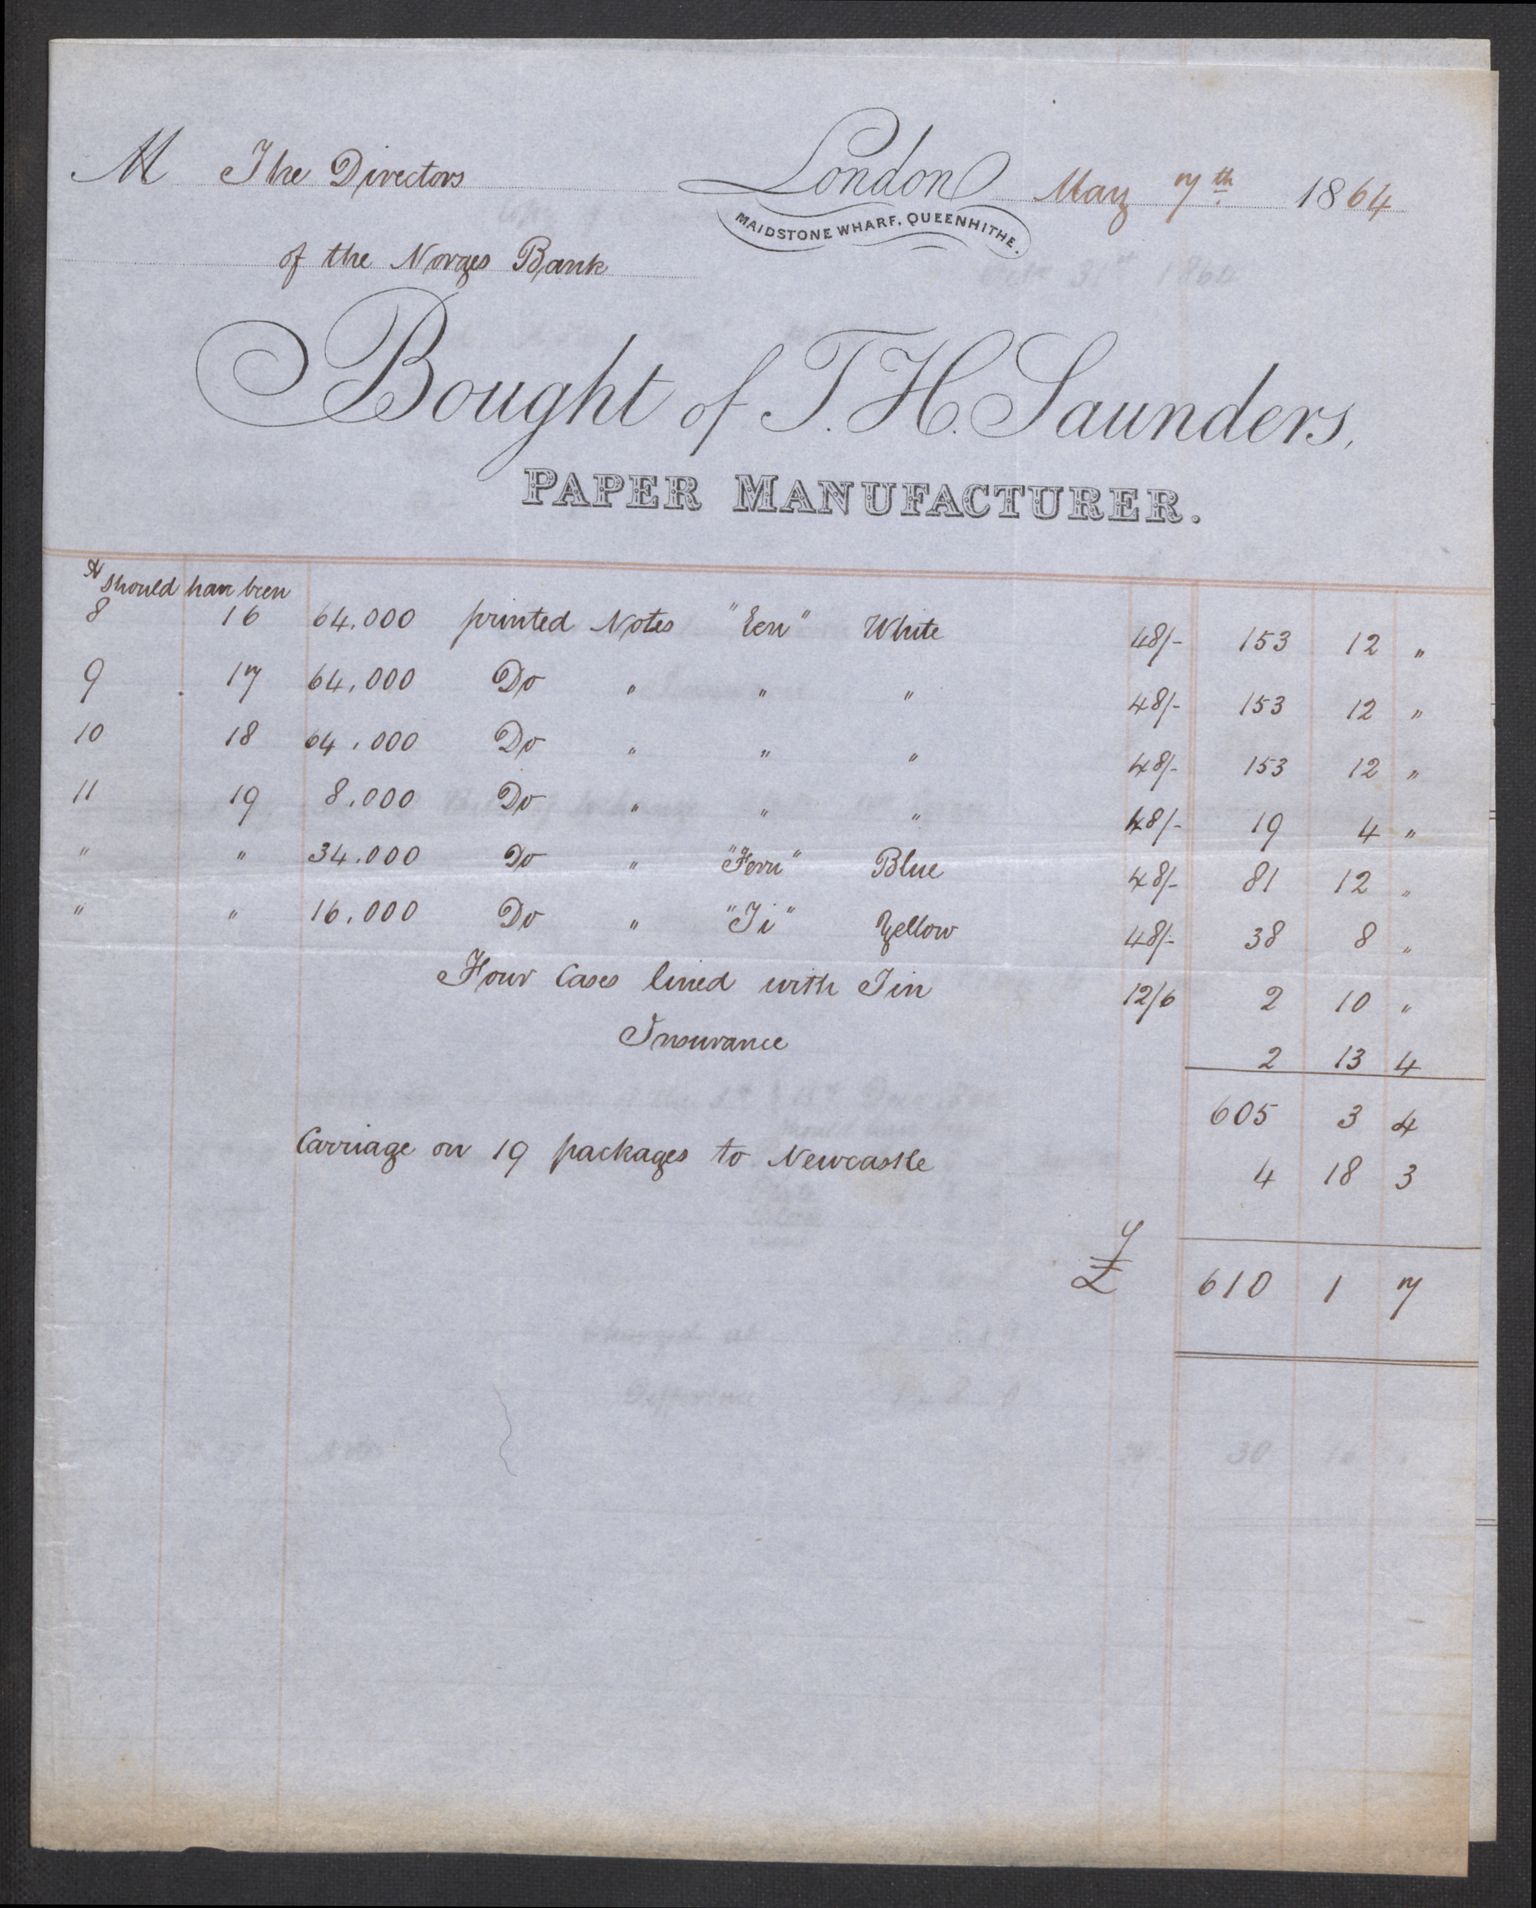 M The Directors London May 7th 1864
MAIDSTONE WHARF, QUEENHITHE.
of the Norges Bank
Bought of T. H. Saunders,
PAPER MANUFACTURER.
should have been
8 16 64,000 printed Notes "Een" White 48/- 153 12 "
9 17 64,000 Do " " " 48/- 153 12 "
10 18 64,000 Do " " " 48/- 153 12 "
11 19 8,000 Do " " " 48/- 19 4 "
" " 34,000 Do " "Fem" Blue 48/- 81 12 "
" " 16,000 Do " "Ti" Yellow 48/- 38 8 "
Four Cases lined with Tin 12/6 2 10 "
Insurance 2 13 4
605 3 4
Carriage on 19 packages to Newcastle 4 18 3
£ 610 1 7